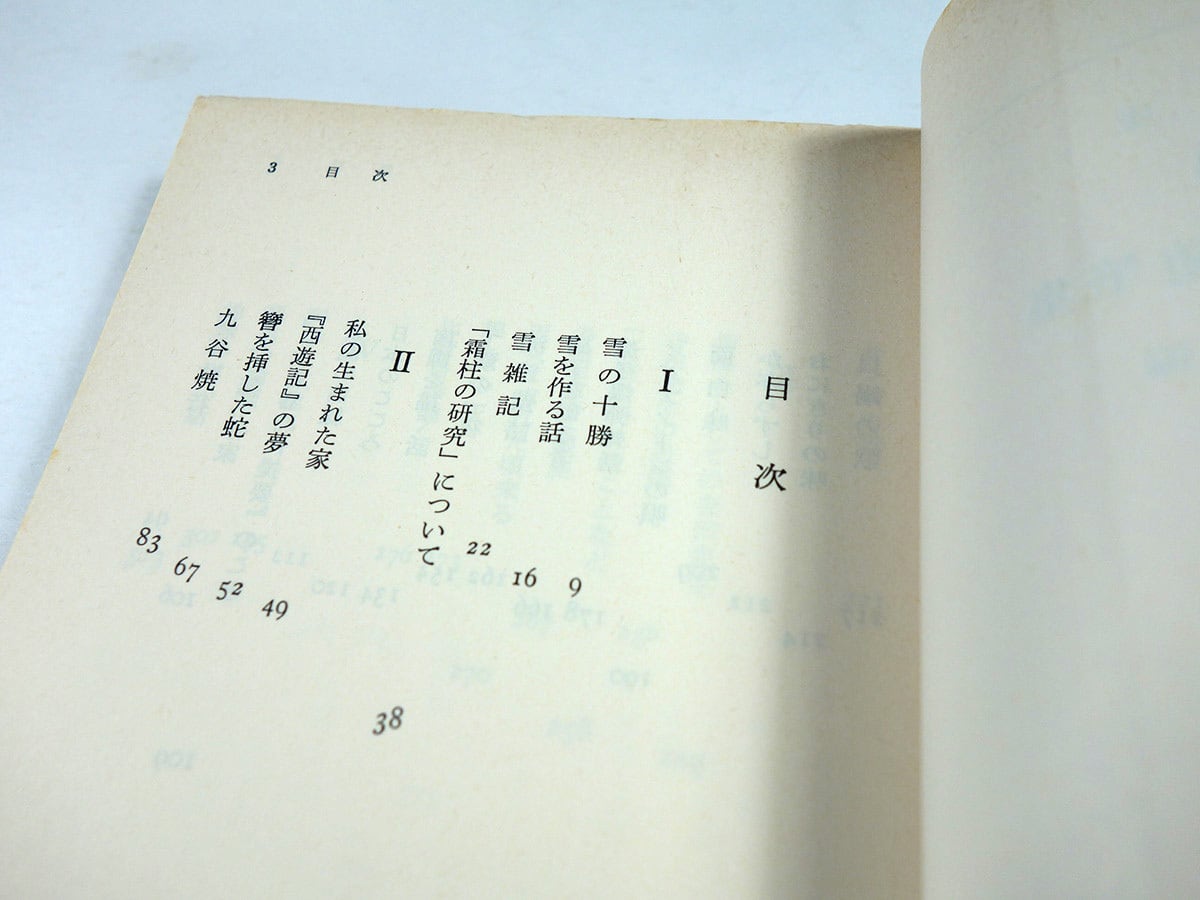 3 目次
目次
I
雪の十勝 9
雪を作る話 16
雪雑記 22
「霜柱の研究」について 38
II
私の生まれた家 49
『西遊記』の夢 52
簪を挿した蛇 67
九谷焼 83